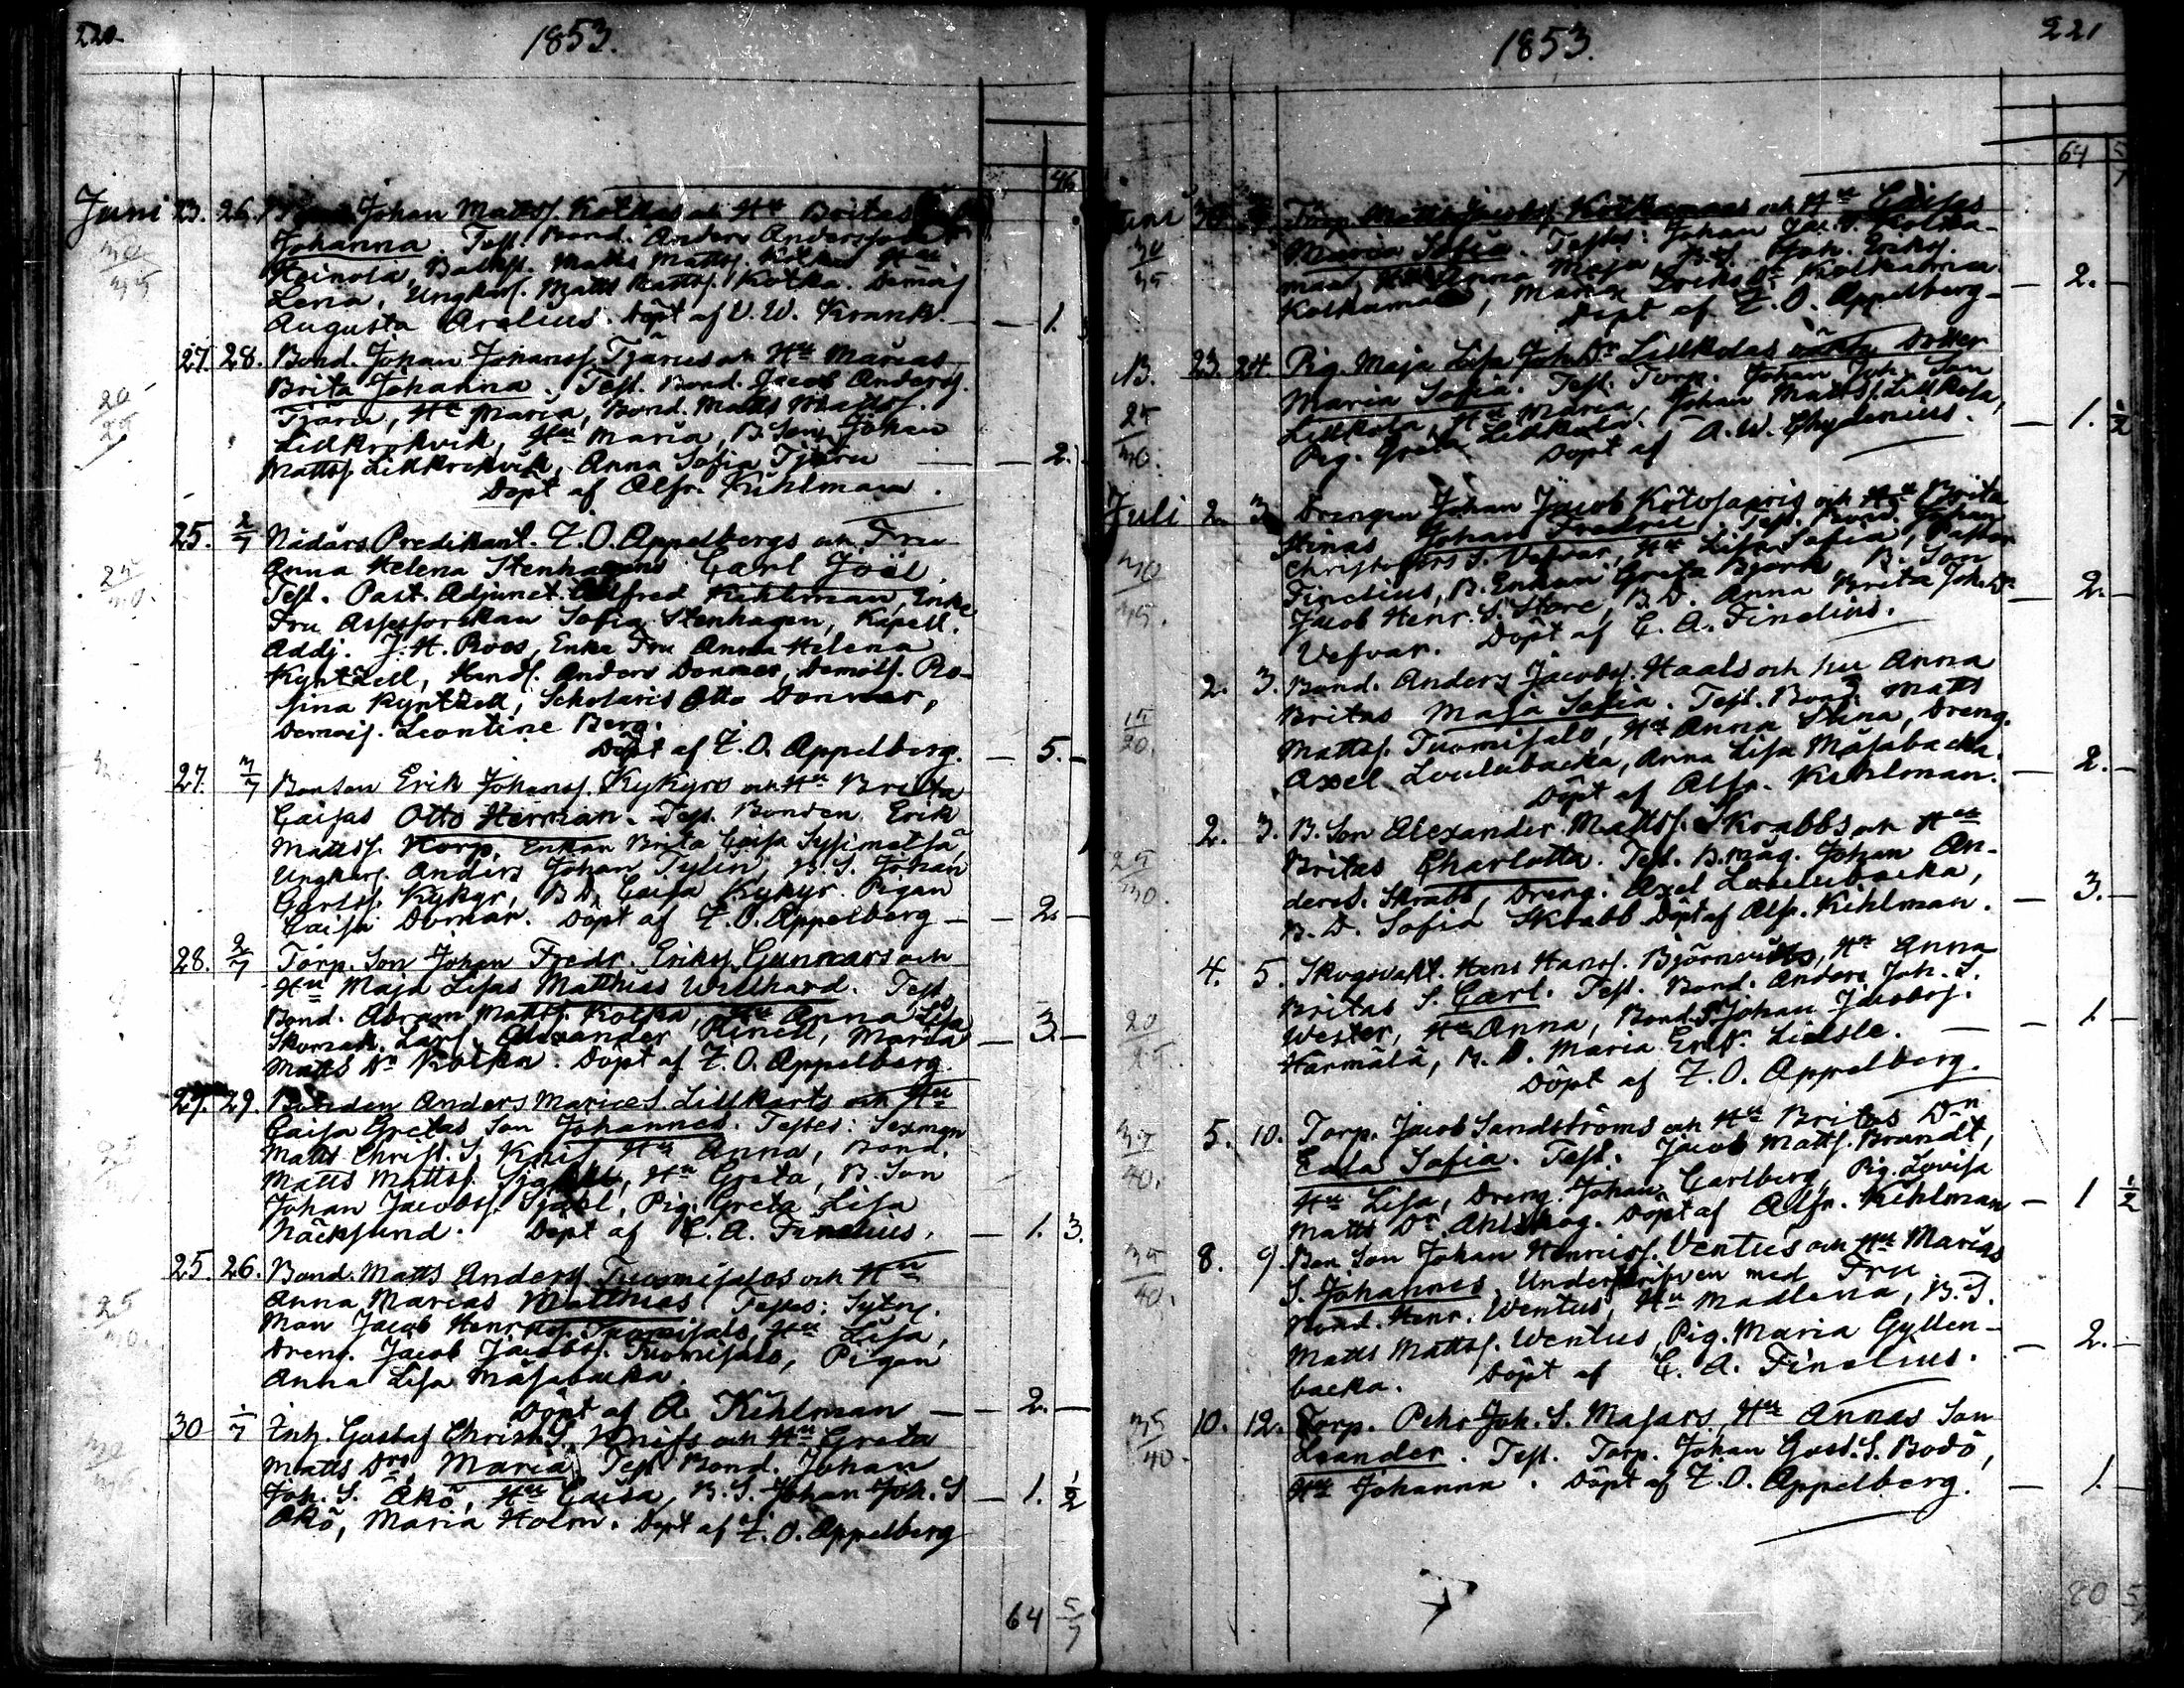 220.
1853.
46
Juni 23. 26. Johan Mattss. Kotkas och Hu Britas
Johanna. Test. Bond. Anders Andersson
Heinola, Mattss. Kotka Hu
Lena, Ungkarl. Matts Mattss. Kotka. Demois
Augusta Arelius. Döpt af V. W. Krank. — 1.
27. 28. Bond. Johan Johanss. Tjärus och Hu Marias
Brita Johanna. Test. Bond. Jacob Anderss.
Tjäru, Hu Maria, Bond. Matts Mattss.
Lillkrokvik, Hu Maria, B. Son Johan
Mattss. Lillkrokvik, Anna Sofia Tjäru — 2.
Döpt af Alfr. Kihlman.
25. 2/7 Nådårs Predikant. Z. O. Appelbergs och Fru
Anna Helena Stenhagens Carl Joël.
Test. Past. Adjunct. Alfred Kihlman, Enke
Fru Assessorskan Sofia Stenhagen, Kapell.
Addj. J. H. Roos, Enke Fru Anna Helena
Kyntzell, Handl. Anders Donner, Demois. Ro-
sina Kyntzell, Scholaris Otto Donner,
Demois. Leontine Berg.
Döpt af Z. O. Appelberg. — 5. —
27. 3/7 Bonden Erik Johanss. Kykyrs och Hu Brita
Caisas Otto Herman. Test. Bonden Erik
Mattss. Korp, Enkan Brita Caisa Sysimetsä,
Ungkarl. Anders Johan Tylin, B. S. Johan
Carlss. Kykyr, B D. Caisa Kykyr. Pigan
Caisa Domar. Döpt af Z. O. Appelberg — 2. —
28. 2/7 Torp. Son Johan Fredr. Erikss. Gunnars och
Hu Maja Lisas Matthias Willhard. Test.
Bond. Abram Mattss. Kotka, Hu Anna Lisa
Skomak. Lärl. Alexander Rinell, Maria
Matts Dr Kotka. Döpt af Z. O. Appelberg. — 3. —
29. 29. Bonden Anders Marics S. Lillkarts och Hu
Caisa Gretas Son Johannes. Testes: Sexman
Matts Christ. S. Knif Hu Anna, Bond.
Matts Mattss. Sjabl, Hu Greta, B. Son
Johan Jacobss. Sjabl, Pig. Greta Lisa
Näcksund. Döpt af C. A. Finelius. — 1. 3.
25. 26. Bond. Matts Anderss. Tuomisalos och Hu
Anna Marias Matthias. Testes: Sytn.
Man Jacob Henrikss. Tuomisalo, Hu Lisa,
Dreng. Jacob Jacobss. Tuomisalo, Pigan
Anna Lisa Måsabacka.
Döpt af A. Kihlman — 2. —
30 1/7 Inh. Gustaf Christ. S. Knifs och Hu Greta
Matts Drs Maria Test. Bond. Johan
Joh. S. Åkö, Hu Caisa, B. S. Johan Joh. S
Åkö, Maria Holm. Döpt af Z. O. Appelberg — 1. 1/2
64 5/7
1853.
221
64 5/7
Juni 30. Torp. Matts Jacobss. Kotkamaas och Hu Caisas
Maria Sofia. Testes: Johan Jac. S. Kotka-
maa, Hu Anna Maja Joh. Erikss.
Kotkamaa, Maria Eriks Dr Kotkamaa
Döpt af Z. O. Appelberg — 2. —
23. 24. Pig. Maja Lisa Joh. Dr Lillkolas oäkta Dotter
Maria Sofia. Test. Torp. Johan Joh. Son
Lillkola, Hu Maria, Johan Mattss. Lillkola,
Pig. Greta Lillkola.
Döpt af A. W. Chydenius. — 1. 1/2
Juli 2. 3. Drengen Johan Jacob Kotosaaris och Hu Brita
Stinas Johan Fredric. Test. Bond. Johan
Christoffers S. Vefvar, Hu Lisa Sofia, Pastor
Finelius, B. Enkan Greta Björk B. Son
Jacob Henr. S. Store, B. D. Anna Brita Joh. Dr
Vefvar. Döpt af C. A. Finelius. — 2. —
2. 3. Bond. Anders Jacobss. Haals och hu Anna
Britas Maja Sofia. Test. Bond. Matts
Mattss. Tuomisalo, Hu Anna Stina, Dreng.
Axel Loulubacka, Anna Lisa Måsabacka.
Döpt af Alfr. Kihlman. — 2. —
2. 3. B. Son Alexander Mattss. Skrabbs och Hu
Britas Charlotta. Test. B. Måg. Johan An-
derss. Skrabb, Dreng. Axel Loulubacka,
B. D. Sofia Skrabb Döpt af Alfr. Kihlman. — 3. —
4. 5. Skogsvakt. Hans Hanss. Björnviks, Hu Anna
Britas S. Carl. Test. Bond. Anders Joh. S.
Wester, Hu Anna, Bond. S. Johan Jacobss.
Harmälä, B. D. Maria Er. Dr Lielsle. — 1. —
Döpt af Z. O. Appelberg.
5. 10. Torp. Jacob Sandströms och Hu Britas Dr
Cala Sofia. Test. Jacob Mattss. Brandt,
Hu Lisa, Dreng. Johan Carlberg, Pig. Lovisa
Matts Dr Ahlskog. Döpt af Alfr. Kihlman — 1 1/2
8. 9. Bon. Son Johan Henricss. Ventus och Hu Marias
S. Johannes. Underskrifven med Fru
Bond. Henr. Wentus, Hu Madlena, B. S.
Matts Mattss. Wentus, Pig. Maria Gyllen-
backa. Döpt af C. A. Finelius. — 2. —
10. 12. Torp. Pehr Joh. S. Masars, Hu Annas Son
Leander. Test. Torp. Johan Gust. S. Bodö,
Hu Johanna. Döpt af Z. O. Appelberg. — 1. —
80 5/7